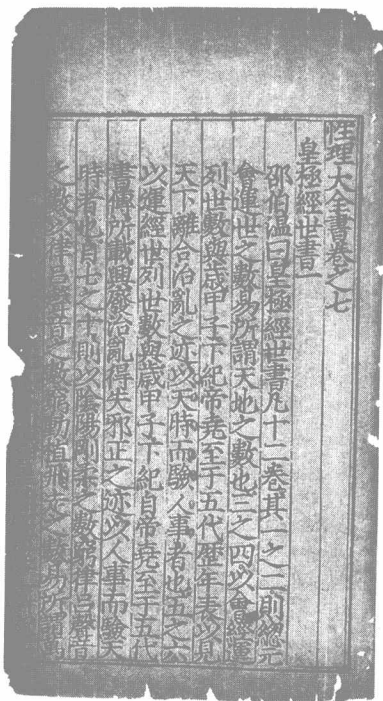 性理大全書卷之七
皇極經世書一
邵伯溫曰皇極經世書凡十二卷其一之二則緫元
會運世之數易所謂天地之數也三之四以會經運
列世數與歲甲子下紀帝堯至于五代歷年表以見
天下離合治亂之迹以天時而驗人事者也五之六
以運經世列世數與歲甲子下紀自帝堯至于五代
書傳所載興廢治亂得失邪正之迹以人事而驗天
時者也自七之十則以陰陽剛柔之數窮律呂聲音
之數以律呂聲音之數窮動植飛走之數易所謂萬